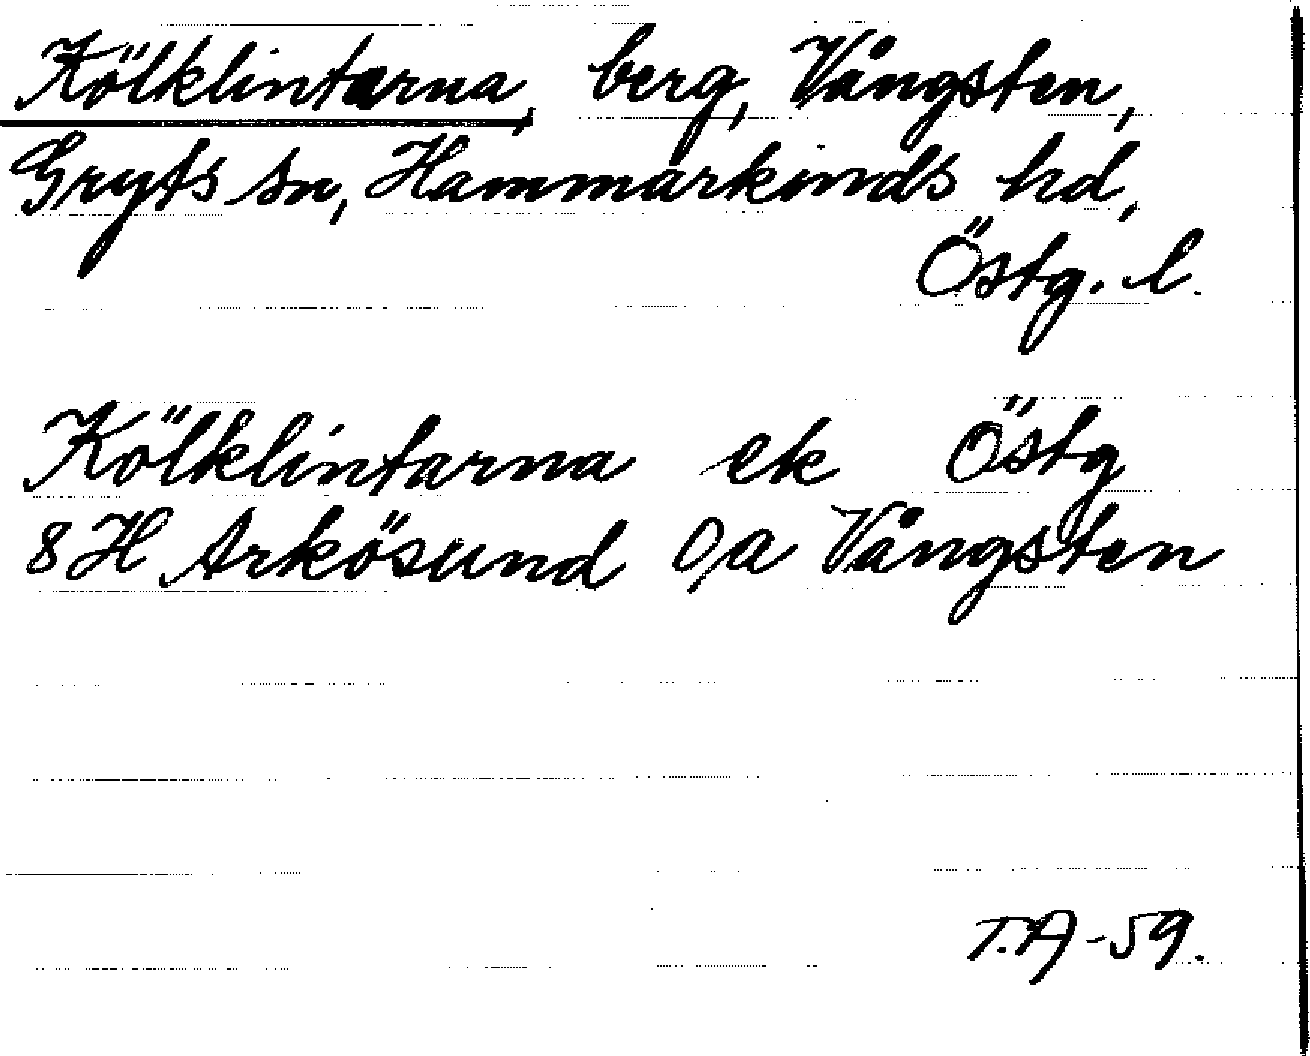 Kölklintarna, berg, Vångsten,
Gryts sn, Hammarkinds hd,
Östg. l.
Kölklintarna ek Östg
8H Arkösund O/a Vångsten
T.A-59.